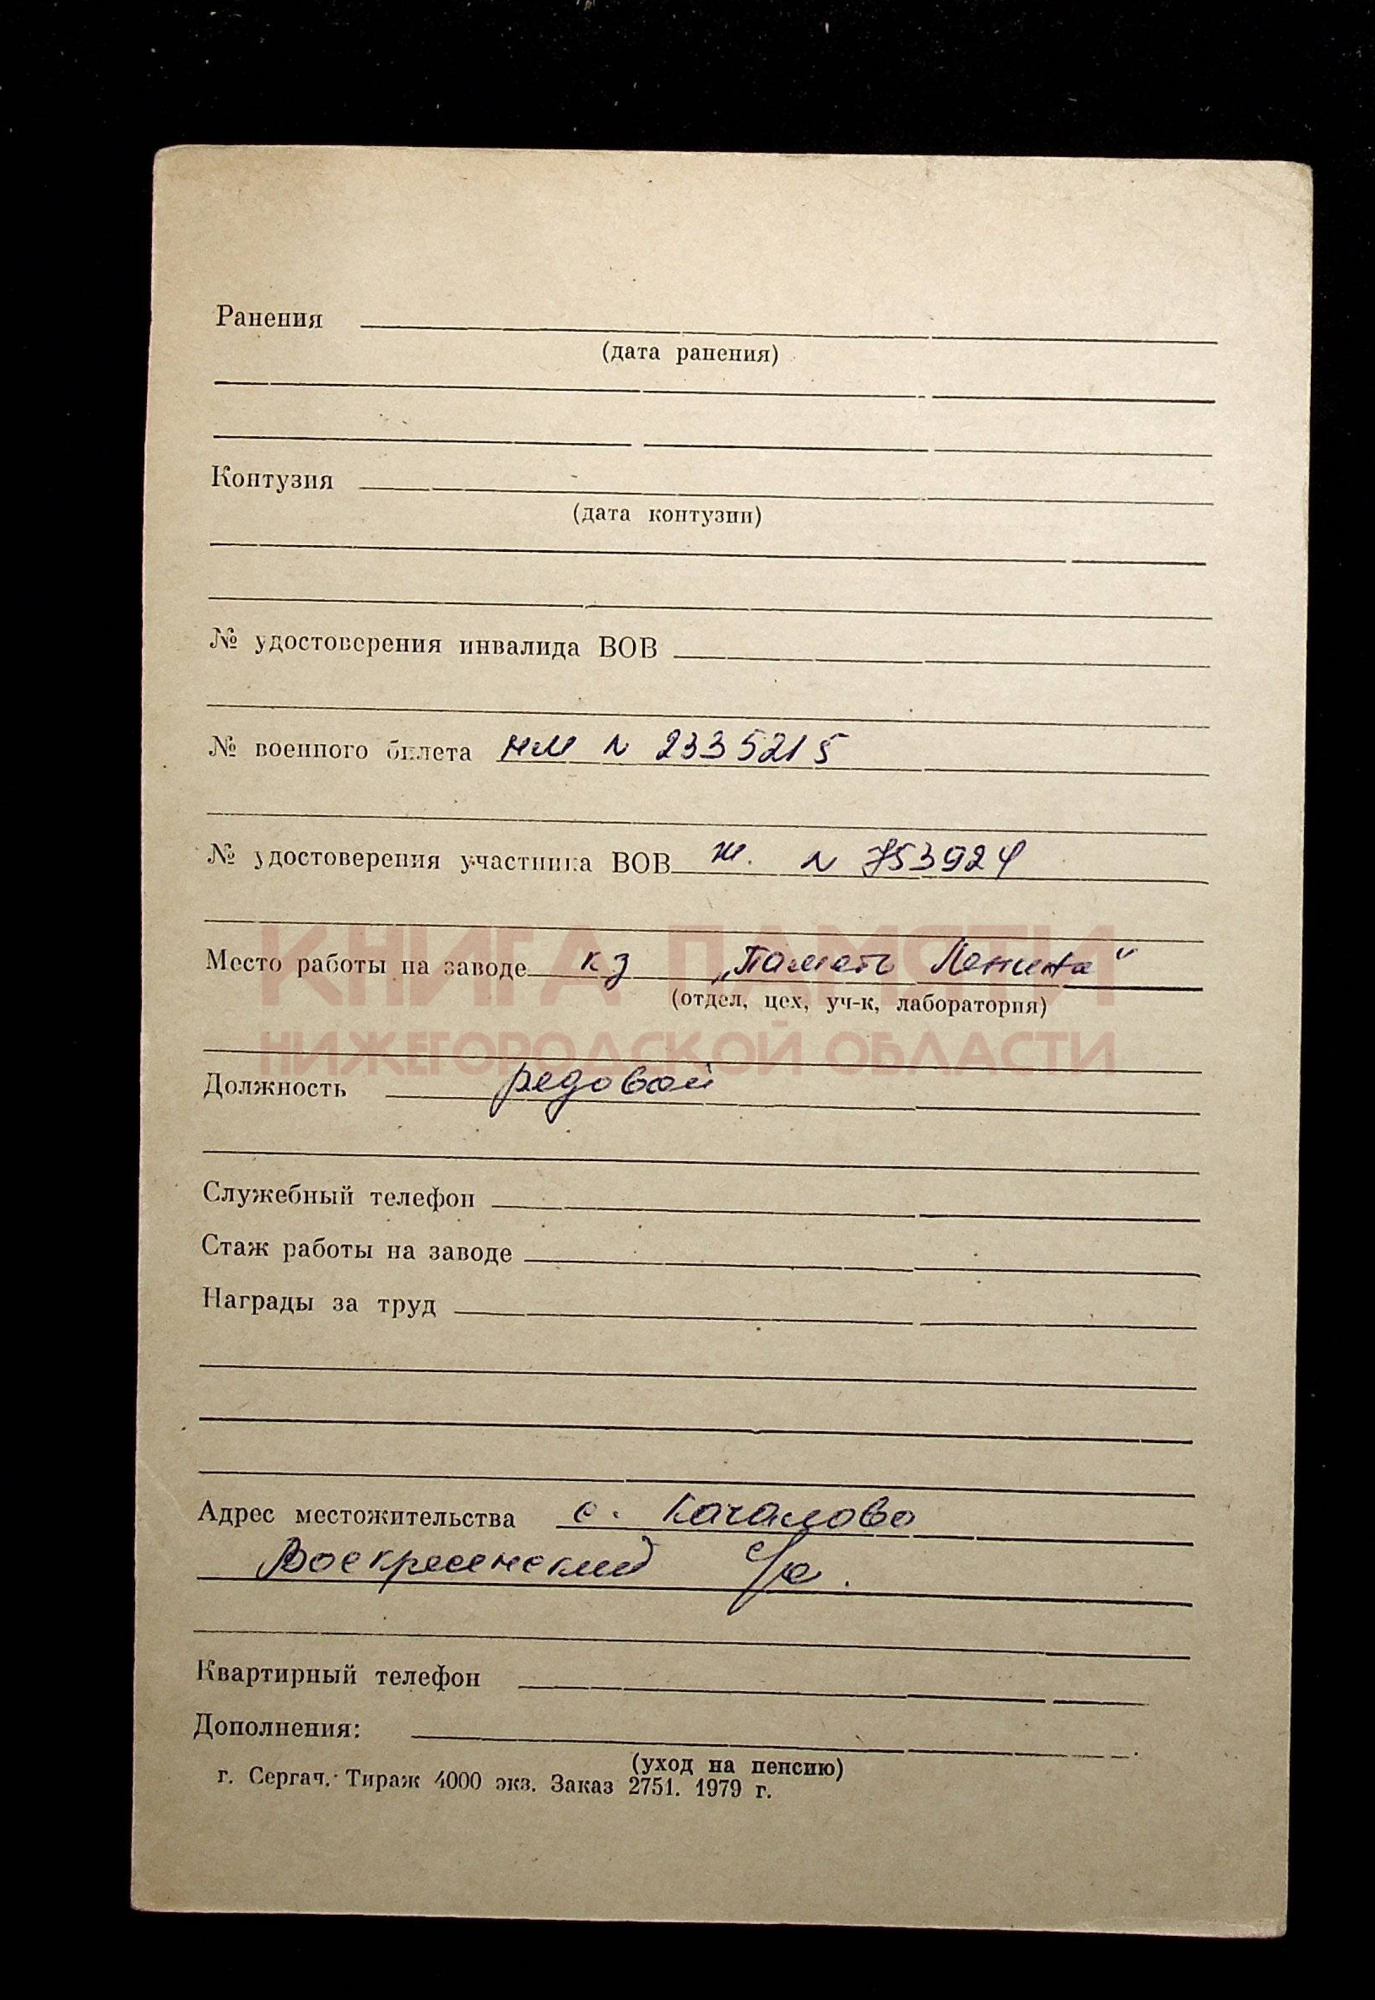 Ранения
(дата ранения)
Контузия
(дата контузии)
№ удостоверения инвалида ВОВ
№ военного билета НМ N 2335215
№ удостоверения участника ВОВ Ж. N 753924
КНИГА ПАМЯТИ
Место работы на заводе кз „Память Ленина"
(отдел, цех, уч-к, лаборатория)
НИЖЕГОРОДСКОЙ ОБЛАСТИ
Должность редовой
Служебный телефон
Стаж работы на заводе
Награды за труд
Адрес местожительства с. Качалово
Воскресенский
Квартирный телефон
Дополнения:
(уход на пенсию)
г. Сергач. Тираж 4000 экз. Заказ 2751. 1979 г.